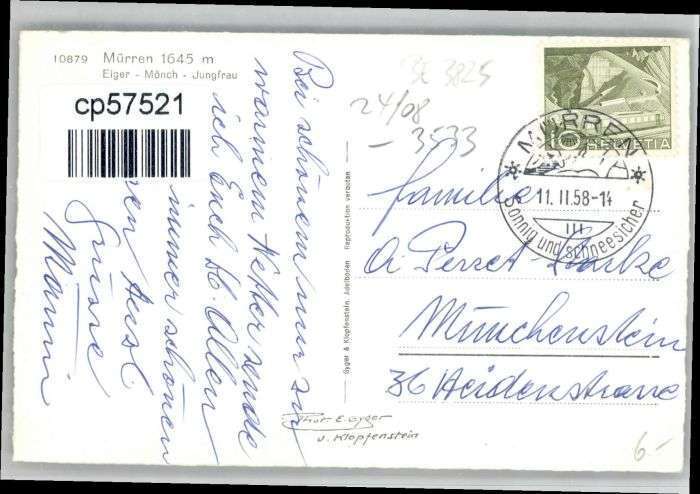 10879 Mürren 1645 m
Eiger - Mönch - Jungfrau
cp57521
Bei schönem nur zu
warmem Wetter sende
ich Euch lb. Allen
immer schönen
Grüsse
Mammi
Gyger & Klopfenstein, Adelboden Reproduction verboten
Phot. E. Gyger
u. Klopfenstein
BE 3825
24/08
- 3533
HELVETIA
MÜRREN
11.II.58-14
III
Sonnig und schneesicher
Familie
A. Perret
Münchenstein
36 Heidenstrasse
6-